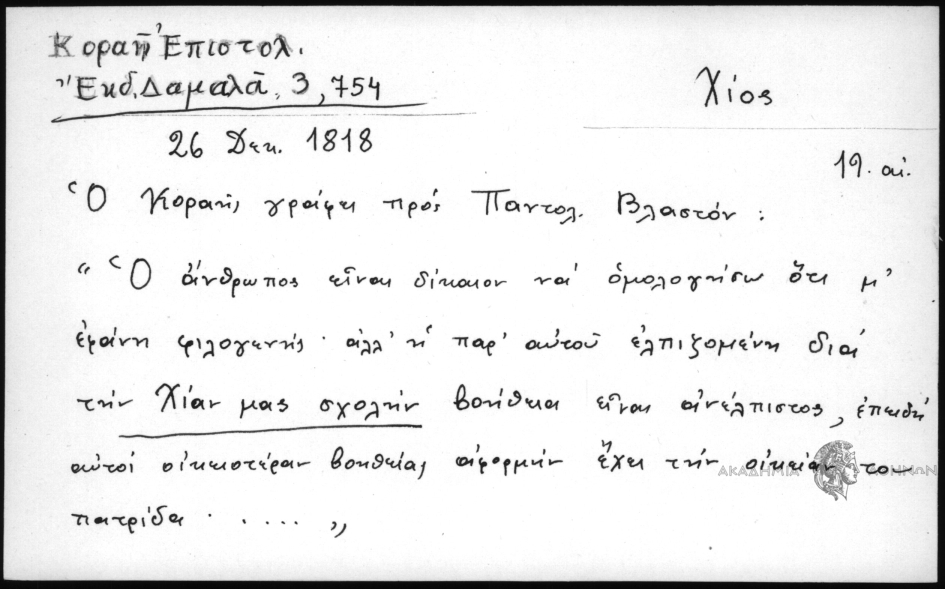 Κοραῆ Ἐπιστολ.
Ἔκδ. Δαμαλᾶ, 3, 754
Χίος
26 Δεκ. 1818
19. αἰ.
Ὁ Κοραῆς γράφει πρός Παντολ. Βλαστόν :
"Ὁ ἄνθρωπος εἶναι δίκαιον νά ὁμολογήσω ὅτι μ'
ἐφάνη φιλογενής · ἀλλ' ἡ παρ' αὐτοῦ ἐλπιζομένη διά
τήν Χίαν μας σχολήν βοήθεια εἶναι ἀνέλπιστος, ἐπειδή
αὐτοί οἰκειοτέραν βοηθείας ἀφορμήν ἔχει τήν οἰκείαν του
πατρίδα · ..... "
ΑΚΑΔΗΜΙΑ ΑΘΗΝΩΝ